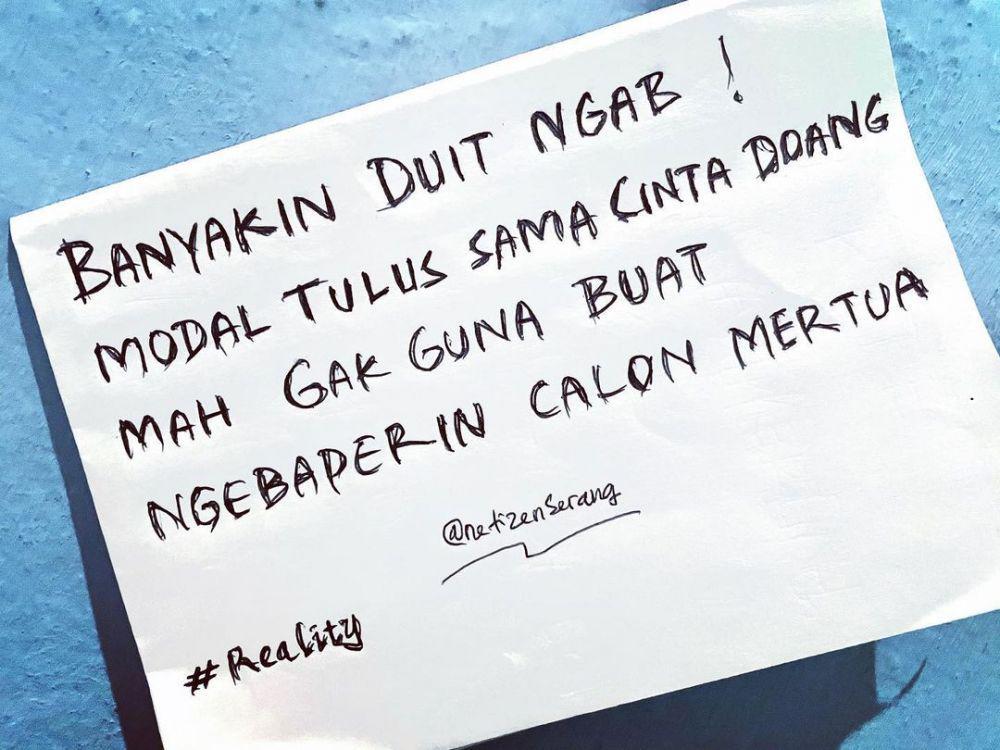 BANYAKIN DUIT NGAB !
MODAL TULUS SAMA CINTA DOANG
MAH GAK GUNA BUAT
NGEBAPERIN CALON MERTUA
@netizenserang
#Reality